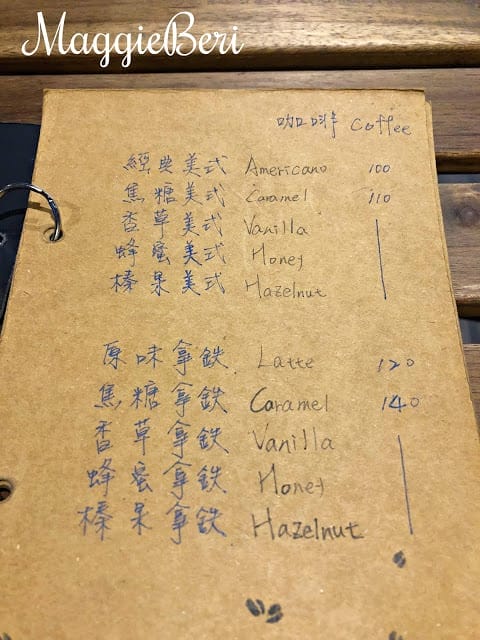 MaggieBeri
咖啡 Coffee
經典美式 Americano 100
焦糖美式 Caramel 110
香草美式 Vanilla
蜂蜜美式 Honey
榛果美式 Hazelnut
原味拿鉄 Latte 120
焦糖拿鉄 Caramel 140
香草拿鉄 Vanilla
蜂蜜拿鉄 Honey
榛果拿鉄 Hazelnut